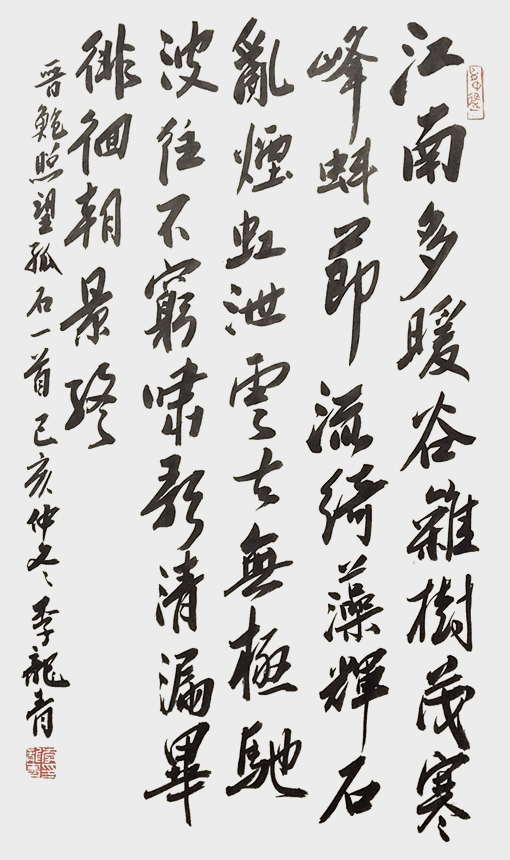 江南多暖谷雜樹茂寒
峰蚌節流綺藻輝石
亂煙虹泄雲去無極馳
波往不窮嘯歌清漏畢
徘徊朝景終
晉鮑照望孤石一首己亥仲冬李龍青